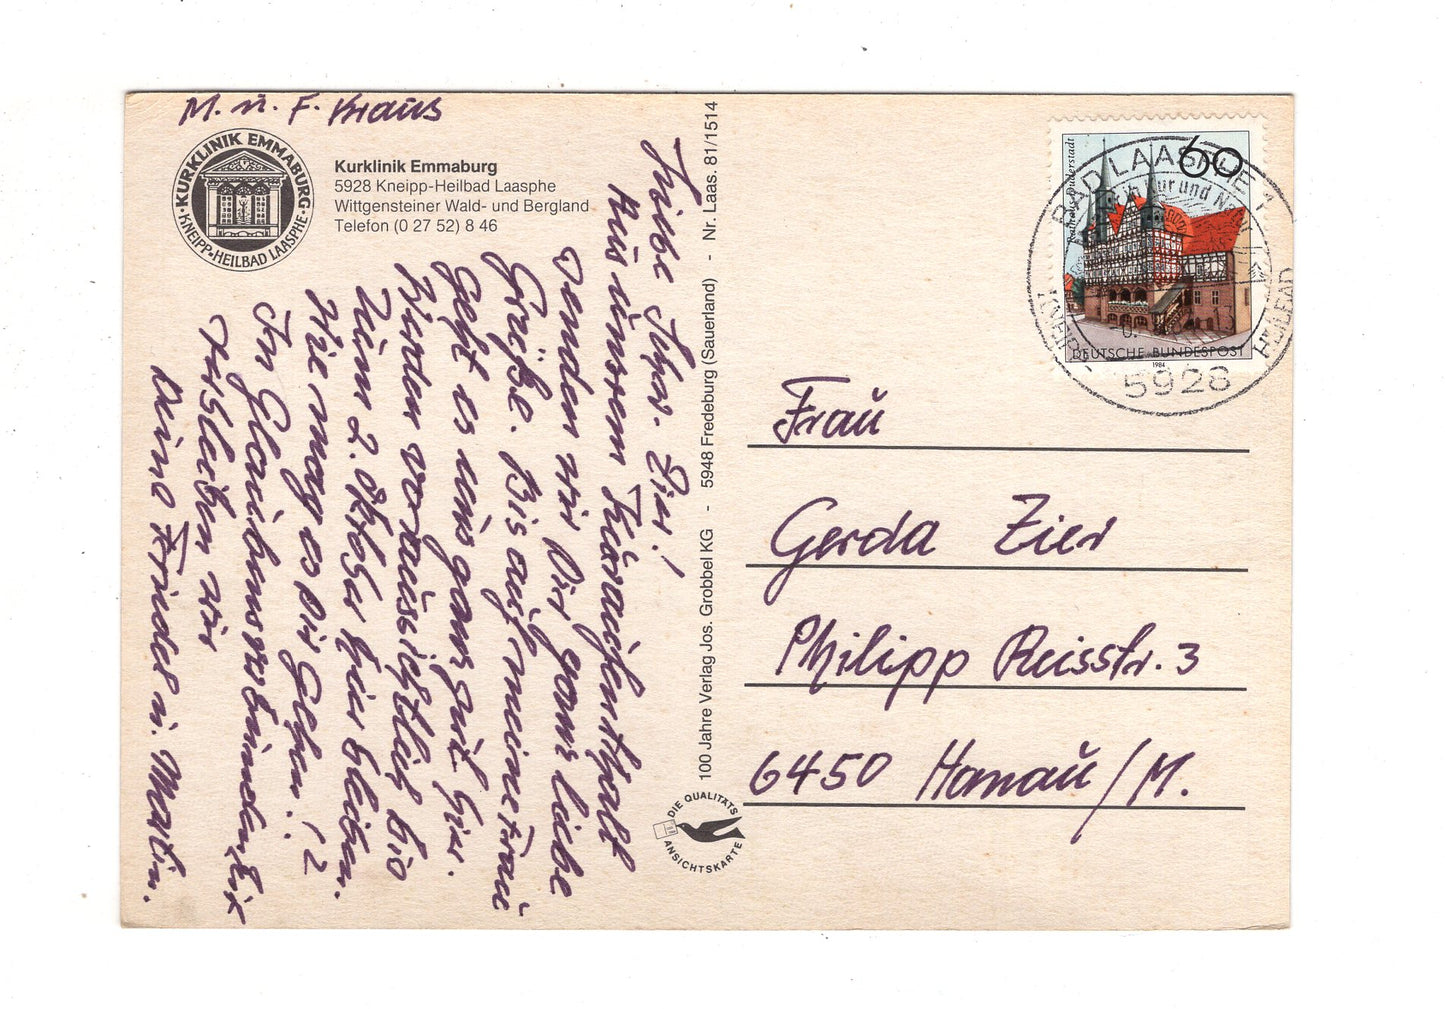 M. u. F. Kraus
KURKLINIK EMMABURG
KNEIPP-HEILBAD LAASPHE
Kurklinik Emmaburg
5928 Kneipp-Heilbad Laasphe
Wittgensteiner Wald- und Bergland
Telefon (0 27 52) 8 46
Liebe Schw. Zier!
Aus unserem Kuraufenthalt
senden wir Dir ganz liebe
Grüße. Bis auf meine Frau
geht es uns ganz gut hier.
Werden voraussichtlich bis
zum 2. Oktober hier bleiben.
Wie mag es Dir gehen!?
In Glaubensverbundenheit
verbleiben wir
Deine Frieda u. Martin.
100 Jahre Verlag Jos. Grobbel KG - 5948 Fredeburg (Sauerland) - Nr. Laas. 81/1514
DIE QUALITÄTS
ANSICHTSKARTE
60
Rathaus Duderstadt
DEUTSCHE BUNDESPOST
1984
BAD LAASPHE 1
Kur und
KNEIPP-HEILBAD
5928
Frau
Gerda Zier
Philipp Reisstr. 3
6450 Hanau/M.